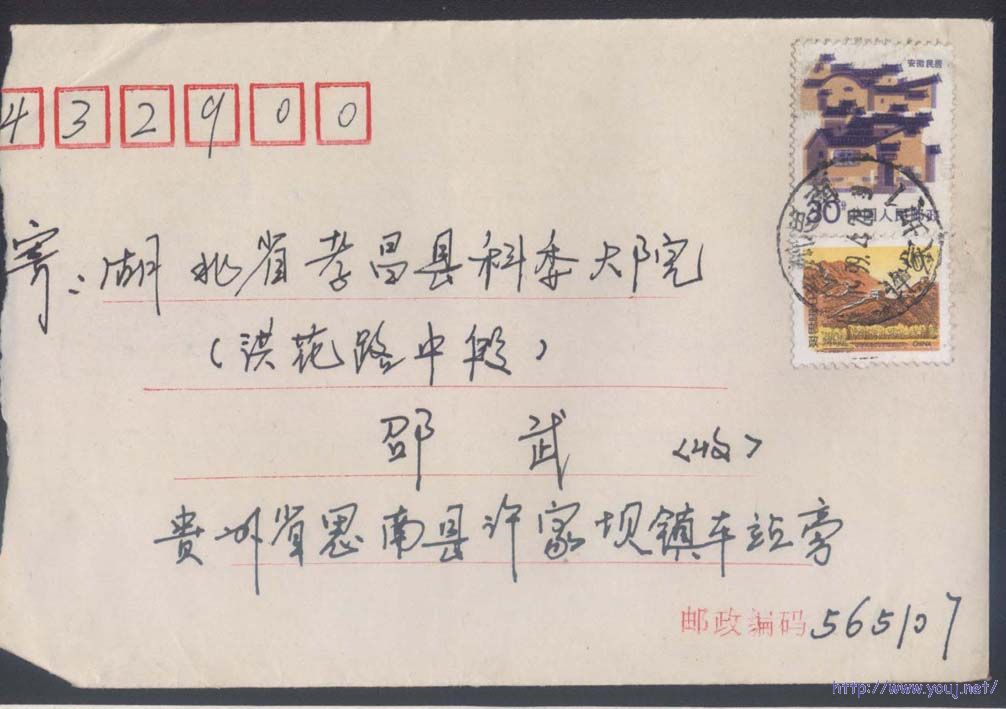 432900
安徽民居
30分 中国人民邮政
寄：湖北省孝昌县科委大院
（洪花路中段）
邵 武 〈收〉
贵州省思南县许家坝镇车站旁
邮政编码 565107
CHINA
http://www.youj.net/